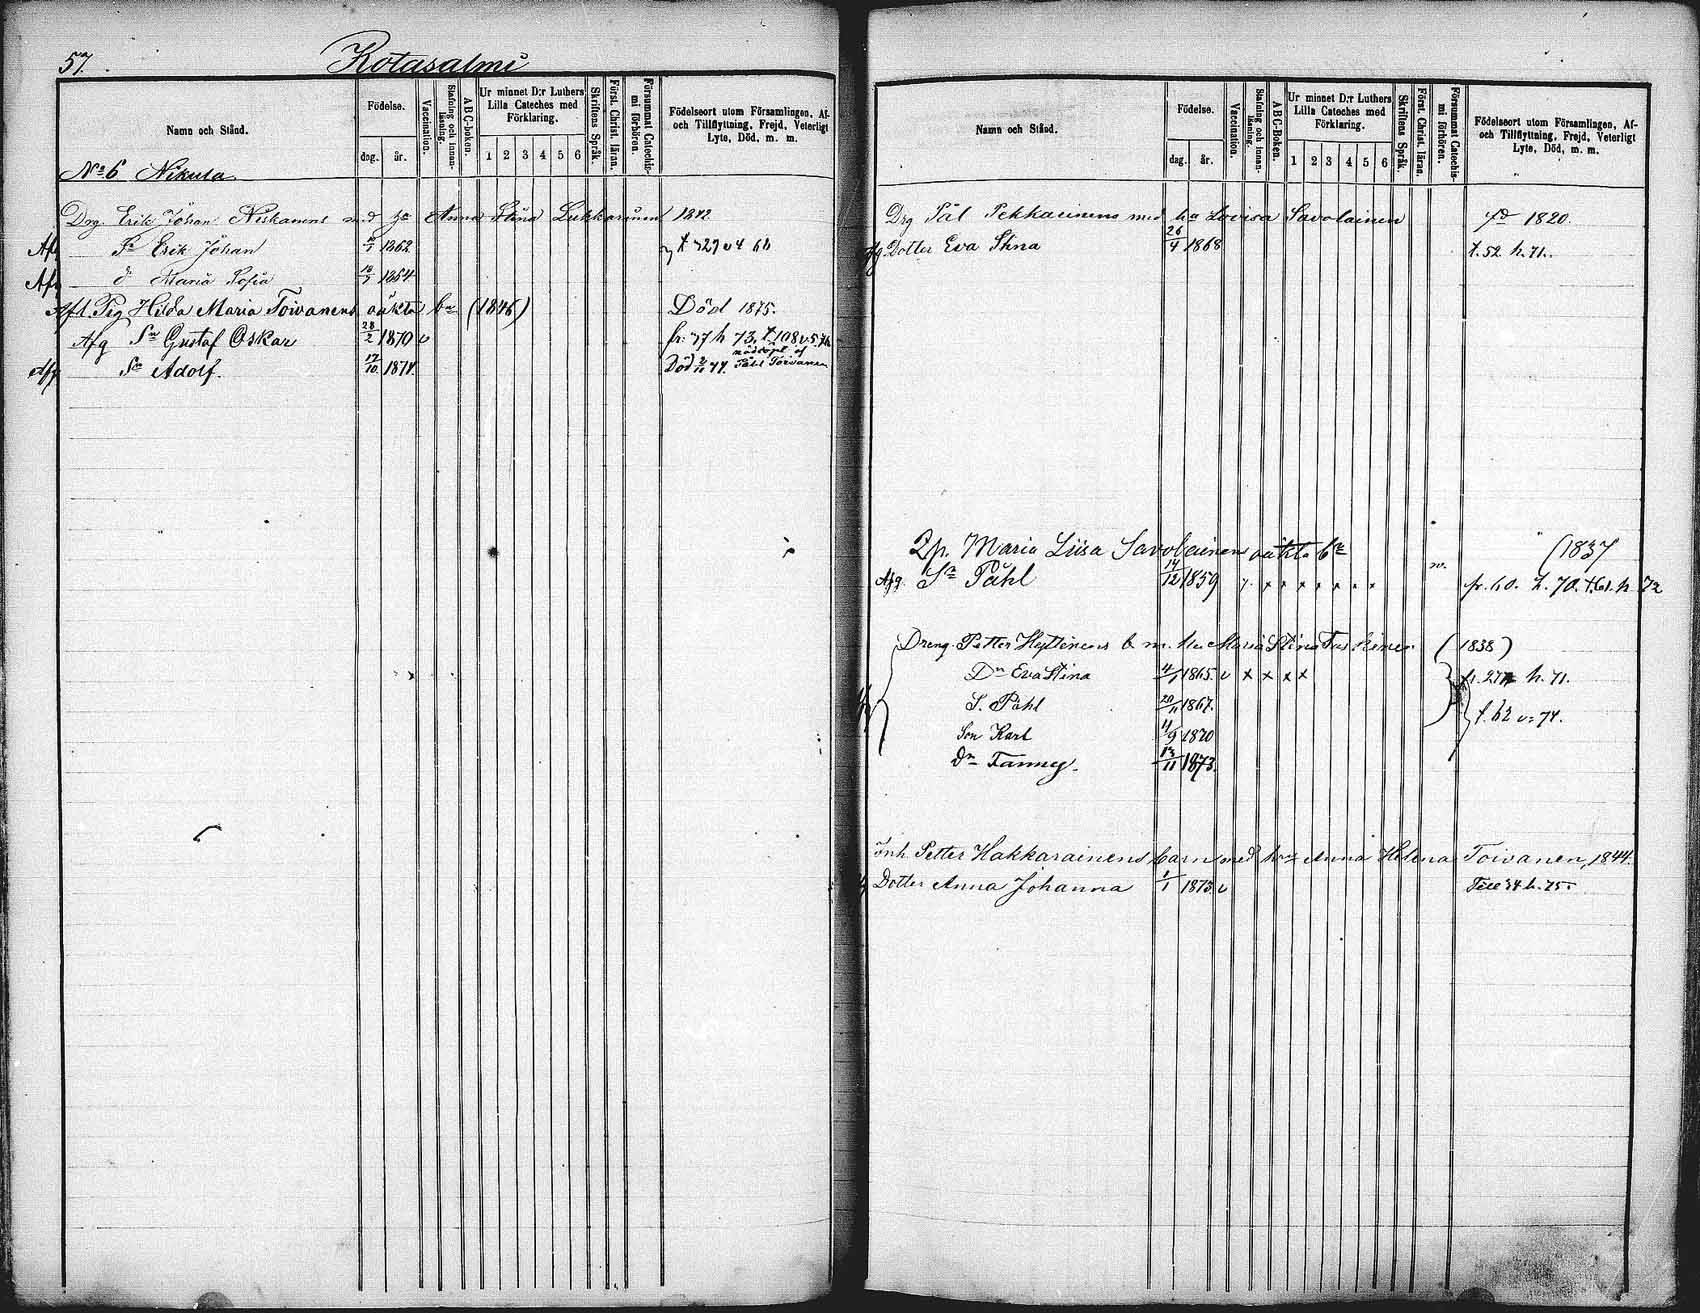 57. Kotasalmi
Namn och Stånd.
Födelse.
dag. år.
Vaccination.
Stafning och innan-läsning.
A B C-boken.
Ur minnet D:r Luthers Lilla Cateches med Förklaring.
1 2 3 4 5 6
Skriftens Språk.
Först. Christ. läran.
Försummat Catechis-mi förhören.
Födelseort utom Församlingen, Af- och Tillflyttning, Frejd, Veterligt Lyte, Död, m. m.
No 6 Nikula
Drg. Erik Johan Niskanens med ha Anna Stina Lukkarinen 1842
Afg Sn Erik Johan 1862 t 729 v 4 66
Afg d Maria Sofia 18/3 1864
Afl. Pig Hilda Maria Toivanens oäkta bn (1846) Död 1875.
Afg Sn Gustaf Oskar 28/2 1870 v fr. 77 h 73, t. 108 v. 5.
Afg Sn Adolf. 17/10 1874. Död 77. Påhl Toivanen
Namn och Stånd.
Födelse.
dag. år.
Vaccination.
Stafning och innan-läsning.
A B C-Boken.
Ur minnet D:r Luthers Lilla Cateches med Förklaring.
1 2 3 4 5 6
Skriftens Språk.
Först Christ. läran.
Försummat Catechis-mi förhören.
Födelseort utom Församlingen, Af- och Tillflyttning, Frejd, Veterligt Lyte, Död, m. m.
Drg Pål Pekkarinens med ha Lovisa Savolainen fd 1820.
Afg Dotter Eva Stina 26/4 1868 t. 52 h. 71.
2p. Maria Liisa Savolainens oäkta bn (1837
Afg. Sn Påhl 14/12 1859 x x x x x x x fr. 60. h. 70. t. 61. h. 72
Dreng. Petter Heiskinens b m. ha Maria Stina Taskinen (1838)
Dn Eva Stina 4/1 1865. v x x x x fr. 27 h. 71.
S. Påhl 20/11 1867. t. 62 v. 74.
Son Karl 11/9 1870
Dn Fanny. 13/11 1873.
Inh. Petter Hakkarainens barn med hu Anna Helena Toivanen, 1844.
Dotter Anna Johanna 1/1 1873. v Till 34 h. 75